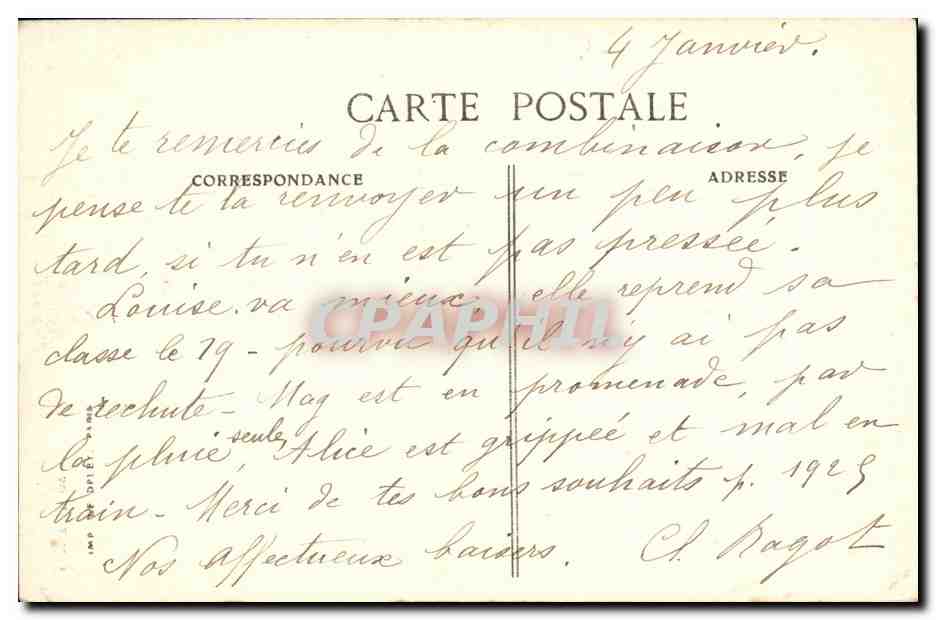 4 Janvier.
CARTE POSTALE
Je te remercies de la combinaison, je
CORRESPONDANCE
ADRESSE
pense te la renvoyer un peu plus
tard, si tu n'en est pas pressée.
Louise va mieux, elle reprend sa
classe le 19 - pourvu qu'il n'y ai pas
de rechute - Mag est en promenade, par
la pluie, seule, Alice est grippée et mal en
train - Merci de tes bons souhaits p. 1925
Nos affectueux baisers. Ch. Ragot
CPAPHIL
IMP
PARIS